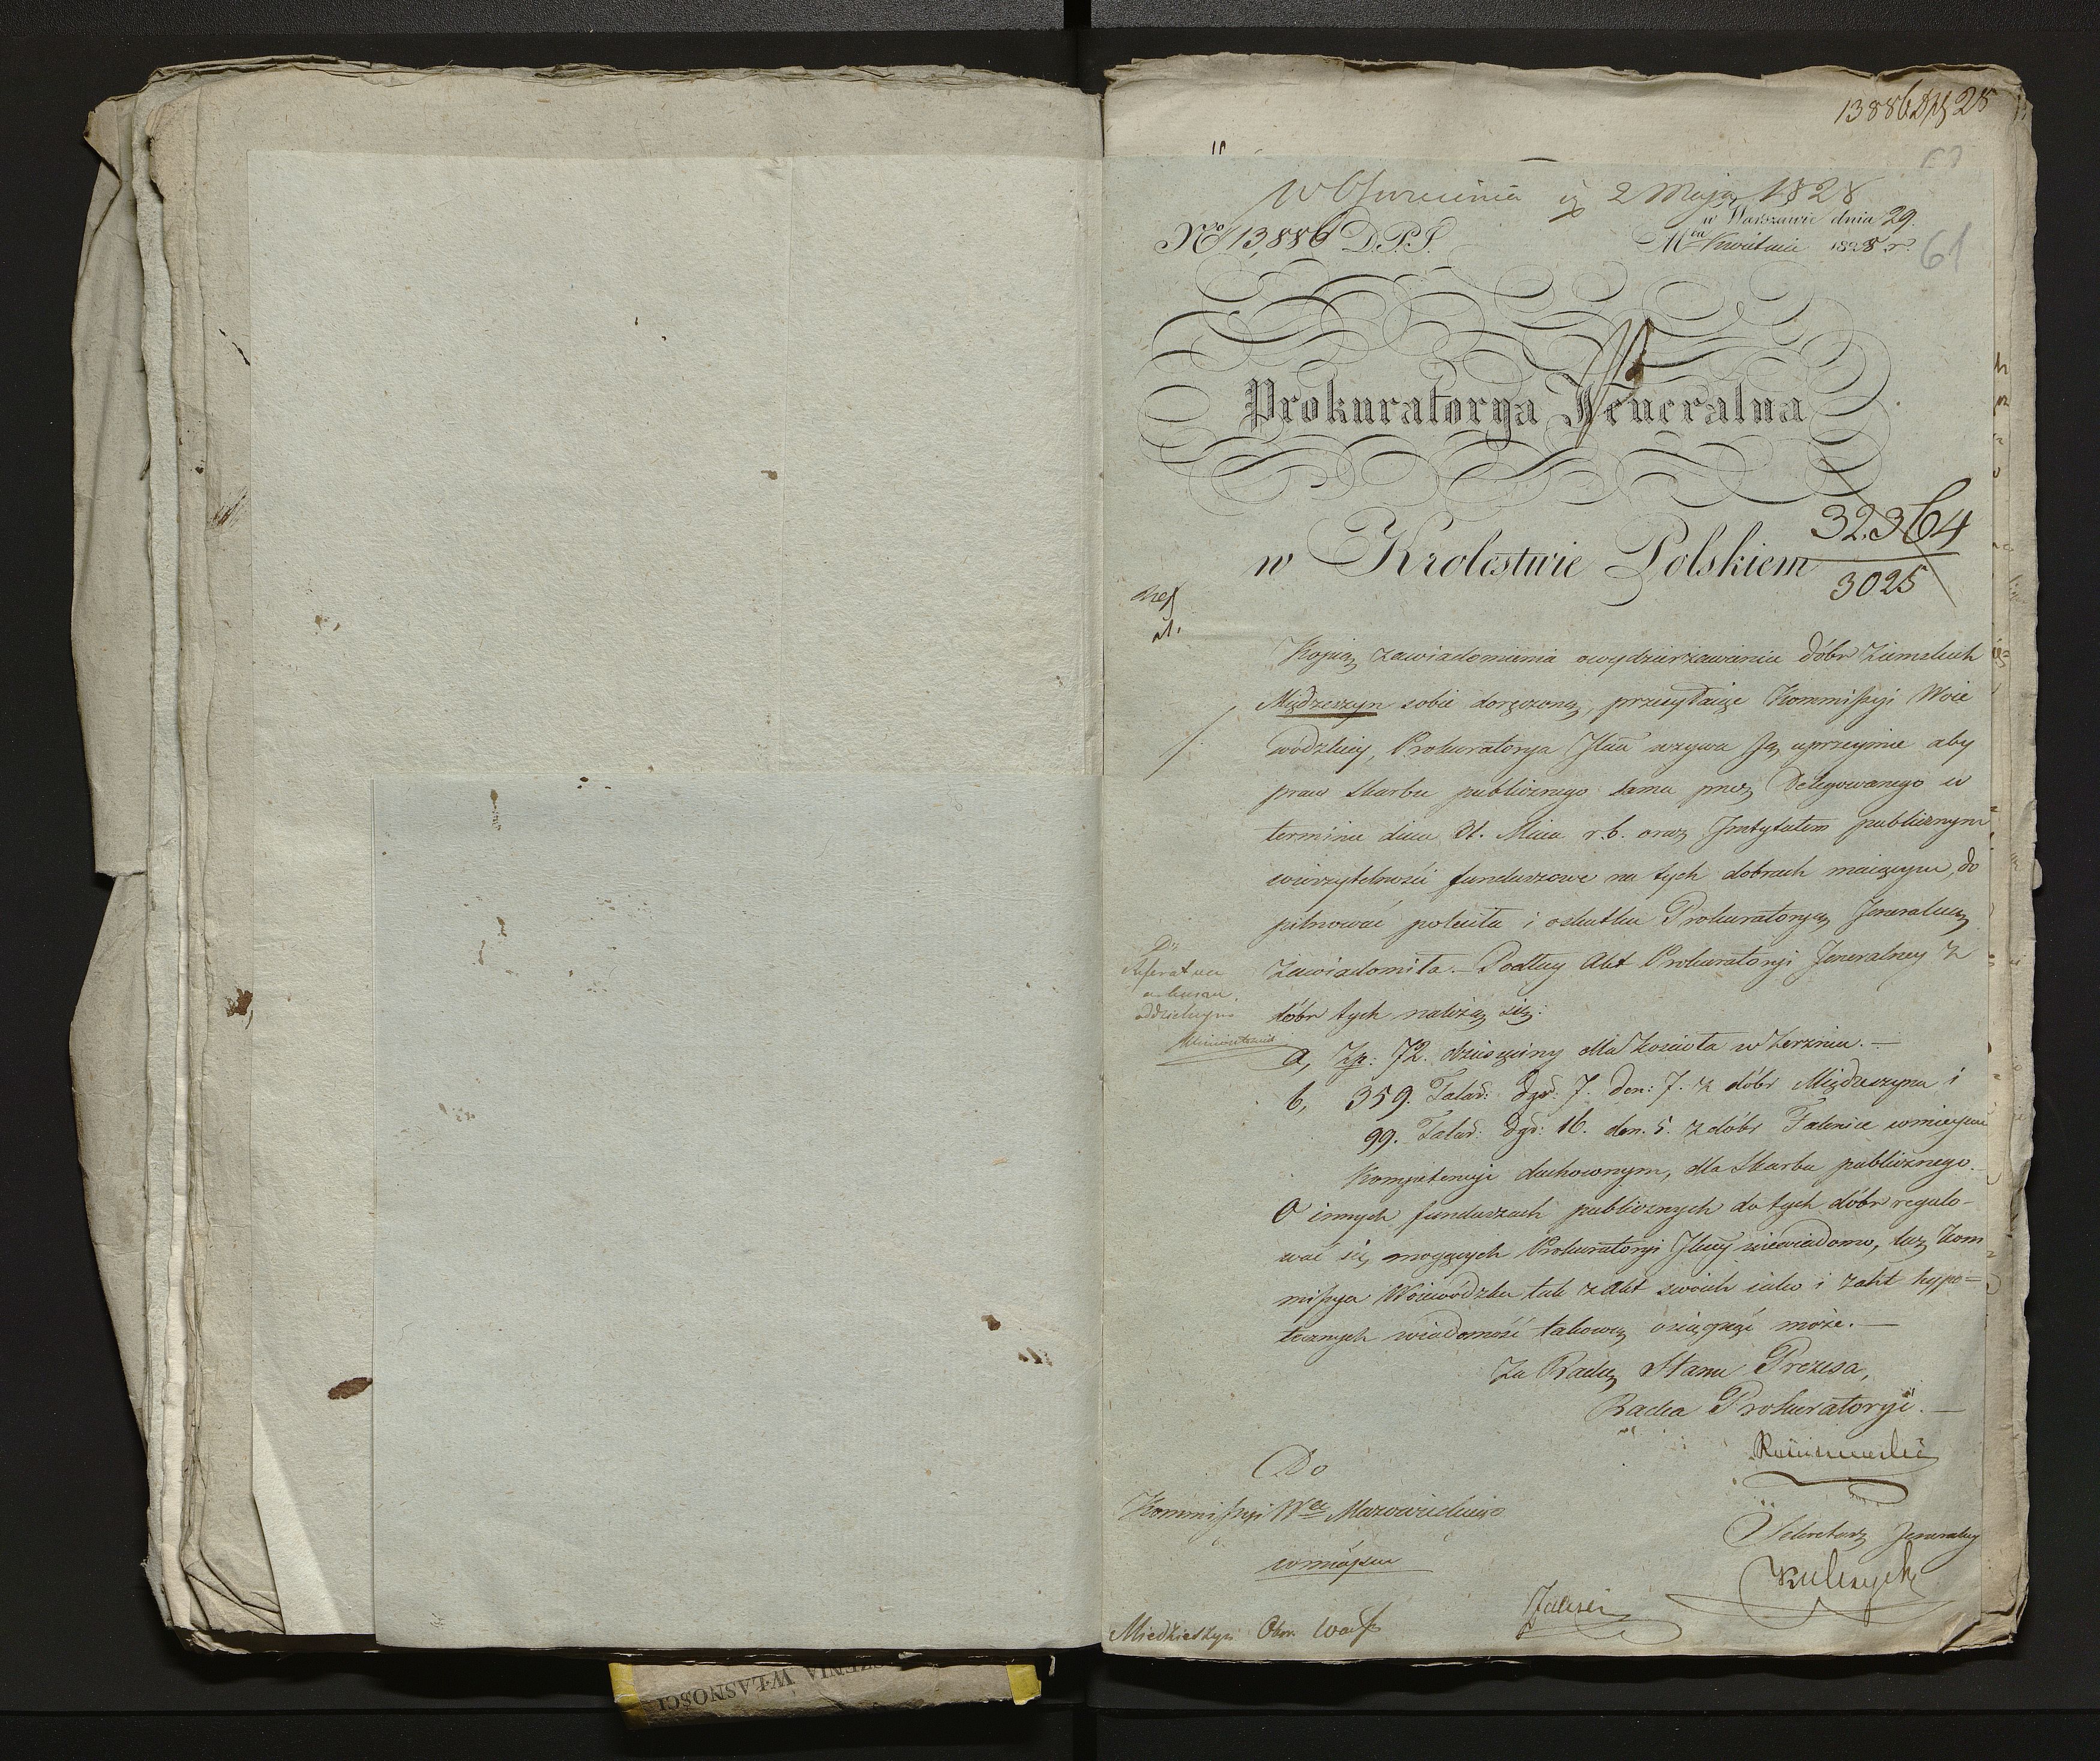 13886 25
2 Maja 1828
w Warszawie dnia 29.
No 13,886 D.P.S.
Mca Kwietnia 1828 r.
61
Prokuratorya Jeneralna
32.364
w Krolestwie Polskiem
3025
Kopią zawiadomienia o wydzierżawieniu dóbr ziemskich
Międzeszyn sobie doręczoną, przesyłaiąc Kommissyi Woie
wódzkiey, Prokuratorya Jlna wzywa Ją uprzeymie aby
praw Skarbu publicznego sama przez Delegowanego w
terminie dnia 31. Maia r.b. oraz Instytutom publicznym
wierzytelności funduszowe na tych dobrach maiącym, do
pilnować poleciła i o skutku Prokuratoryą Jeneralną
zawiadomiła. Podług Akt Prokuratoryi Jeneralney z
dóbr tych należą się:
a, Zp: 72. dziesięciny dla Kościoła w Zerzniu. —
b, 359. Talar: dgr: 7. den: 7. z dóbr Międzeszyna i
99. Talar: dgr: 16. den. 5. z dóbr Falenice w mieyscu
Kompetencyi duchownym, dla Skarbu publicznego.
O innych funduszach publicznych do tych dóbr regulo-
wać się mogących Prokuratoryi Jlney niewiadomo, lecz Kom
missya Woiewódzka tak z Akt swoich iako i z akt hypo=
tecznych wiadomość takową osiągnąć może. —
Za Radcę Stanu Prezesa,
Radca Prokuratoryi. —
Do
Kommissyi Wa Mazowieckiego
w mieyscu
Sekretarz Jeneralny
Kulczycki
Miedzieszyn Obw. Warsz
WŁASNOŚCI